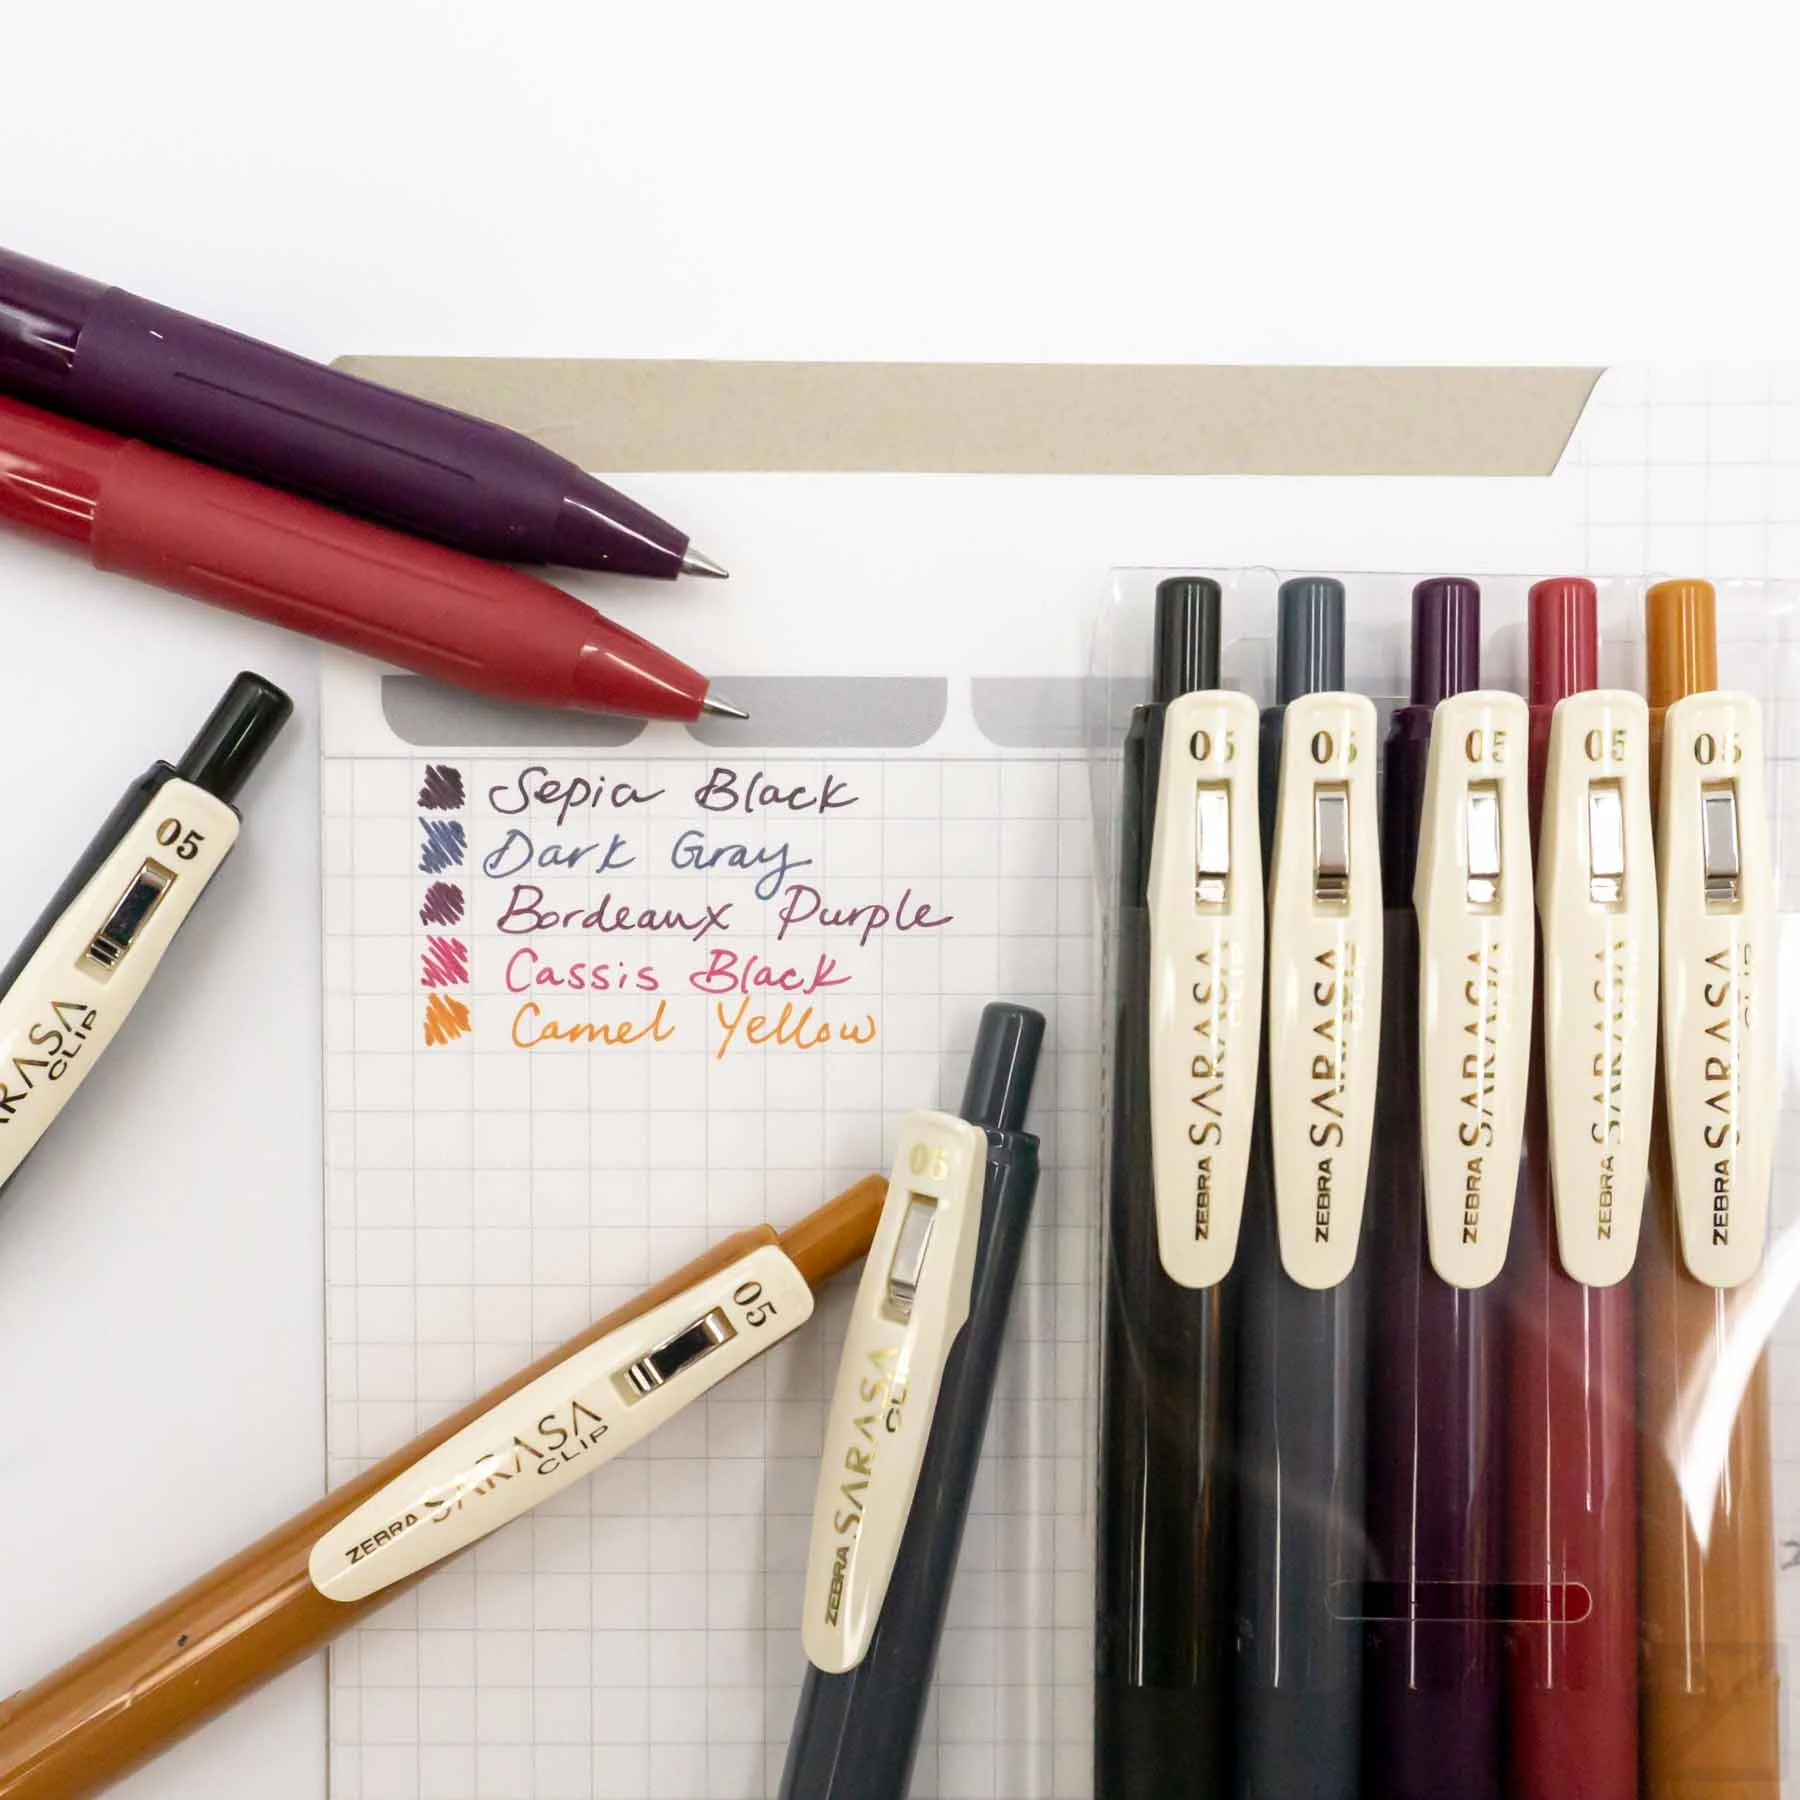 Sepia Black
Dark Gray
Bordeaux Purple
Cassis Black
Camel Yellow
05
SARASA
CLIP
05
ZEBRA SARASA
CLIP
05
ZEBRA SARASA
CLIP
05
ZEBRA SARASA
CLIP
05
ZEBRA SARASA
CLIP
05
ZEBRA SARASA
CLIP
05
ZEBRA SARASA
CLIP
05
ZEBRA SARASA
CLIP